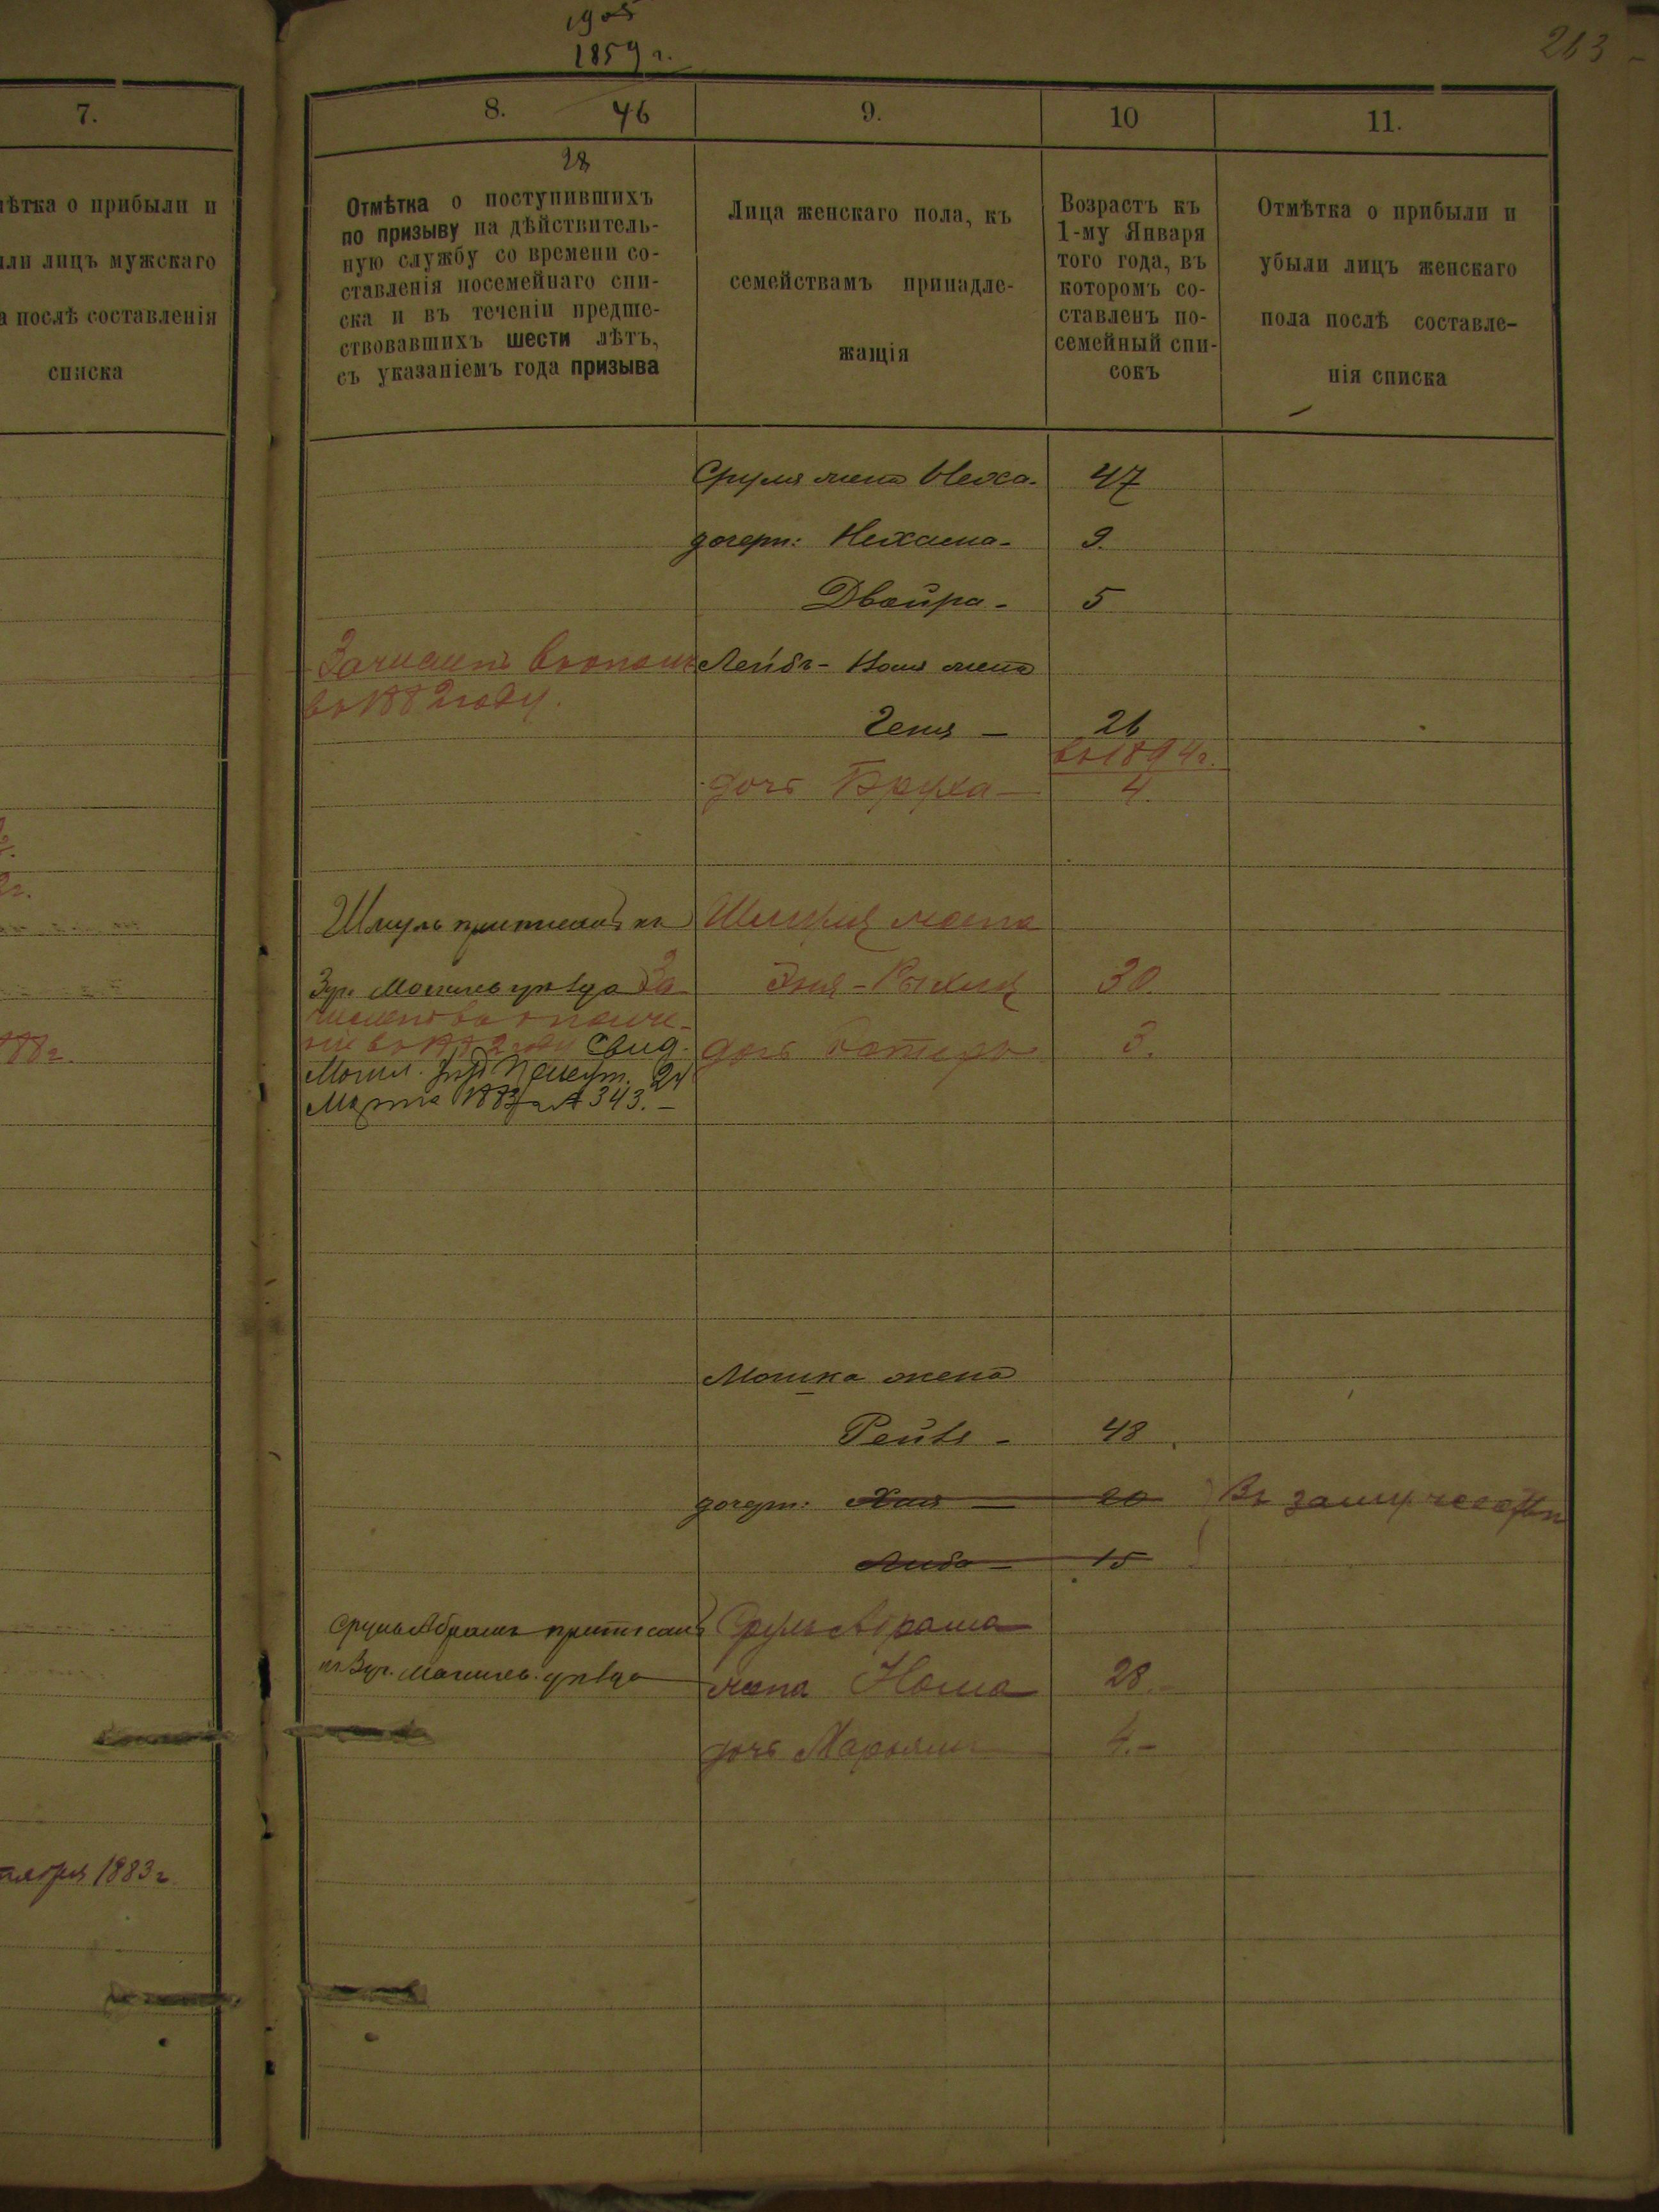 1905
1859 г.
263
7.
ѣтка о прибыли и
или лицъ мужскаго
а послѣ составленія
списка
188г.
1883г
8. 46
28
Отмѣтка о поступившихъ
по призыву на дѣйствитель-
ную службу со времени со-
ставленія посемейнаго спи-
ска и въ теченіи предше-
ствовавшихъ шести лѣтъ,
съ указаніемъ года призыва
9.
Лица женскаго пола, къ
семействамъ принадле-
жащія
10
Возрастъ къ
1-му Января
того года, въ
которомъ со-
ставленъ по-
семейный спи-
сокъ
11.
Отмѣтка о прибыли и
убыли лицъ женскаго
пола послѣ составле-
нія списка
Сруля жена 47
дочери: Нехама - 9.
Двойра - 5
Зачисленъ въ ополч Лейбъ - жена
въ 1882 году.
Геня — 26
въ 1894г.
дочь Бруха — 4
Шмуль приписанъ къ Шмуля жена
Зур. Могилев уѣзда За Эня - 30
численъ въ ополче-
ніе въ 1882 году Свид. дочь 3.
Могил. 24
Марта 188 № 343. —
Мошка жена
Рейзя - 48
дочери: Хая — 20 Въ замужествѣ
Либа — 15
Сруль Абрамъ приписанъ Сруль Абрама
къ Зур. Могилев. уѣзда жена 28.
дочь Марьяся 4. -